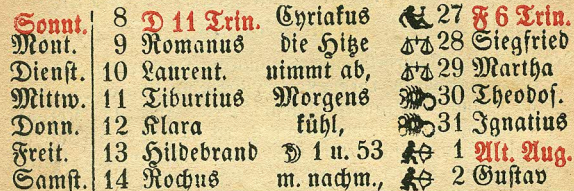 Sonnt. 8 D 11 Trin. Cyriakus 27 F 6 Trin.
Mont. 9 Romanus die Hitze 28 Siegfried
Dienst. 10 Laurent. nimmt ab, 29 Martha
Mittw. 11 Tiburtius Morgens 30 Theodos.
Donn. 12 Klara kühl, 31 Ignatius
Freit. 13 Hildebrand ☽ 1 u. 53 1 Alt. Aug.
Samst. 14 Rochus m. nachm., 2 Gustav